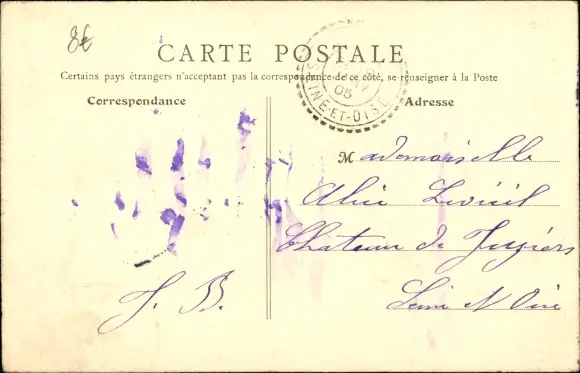 8€
CARTE POSTALE
Certains pays étrangers n'acceptant pas la correspondance de ce côté, se renseigner à la Poste
Correspondance
Adresse
INE-ET-OISE
05
Mademoiselle
Alice
Chateau de Juziers
Seine et Oise
J. B.